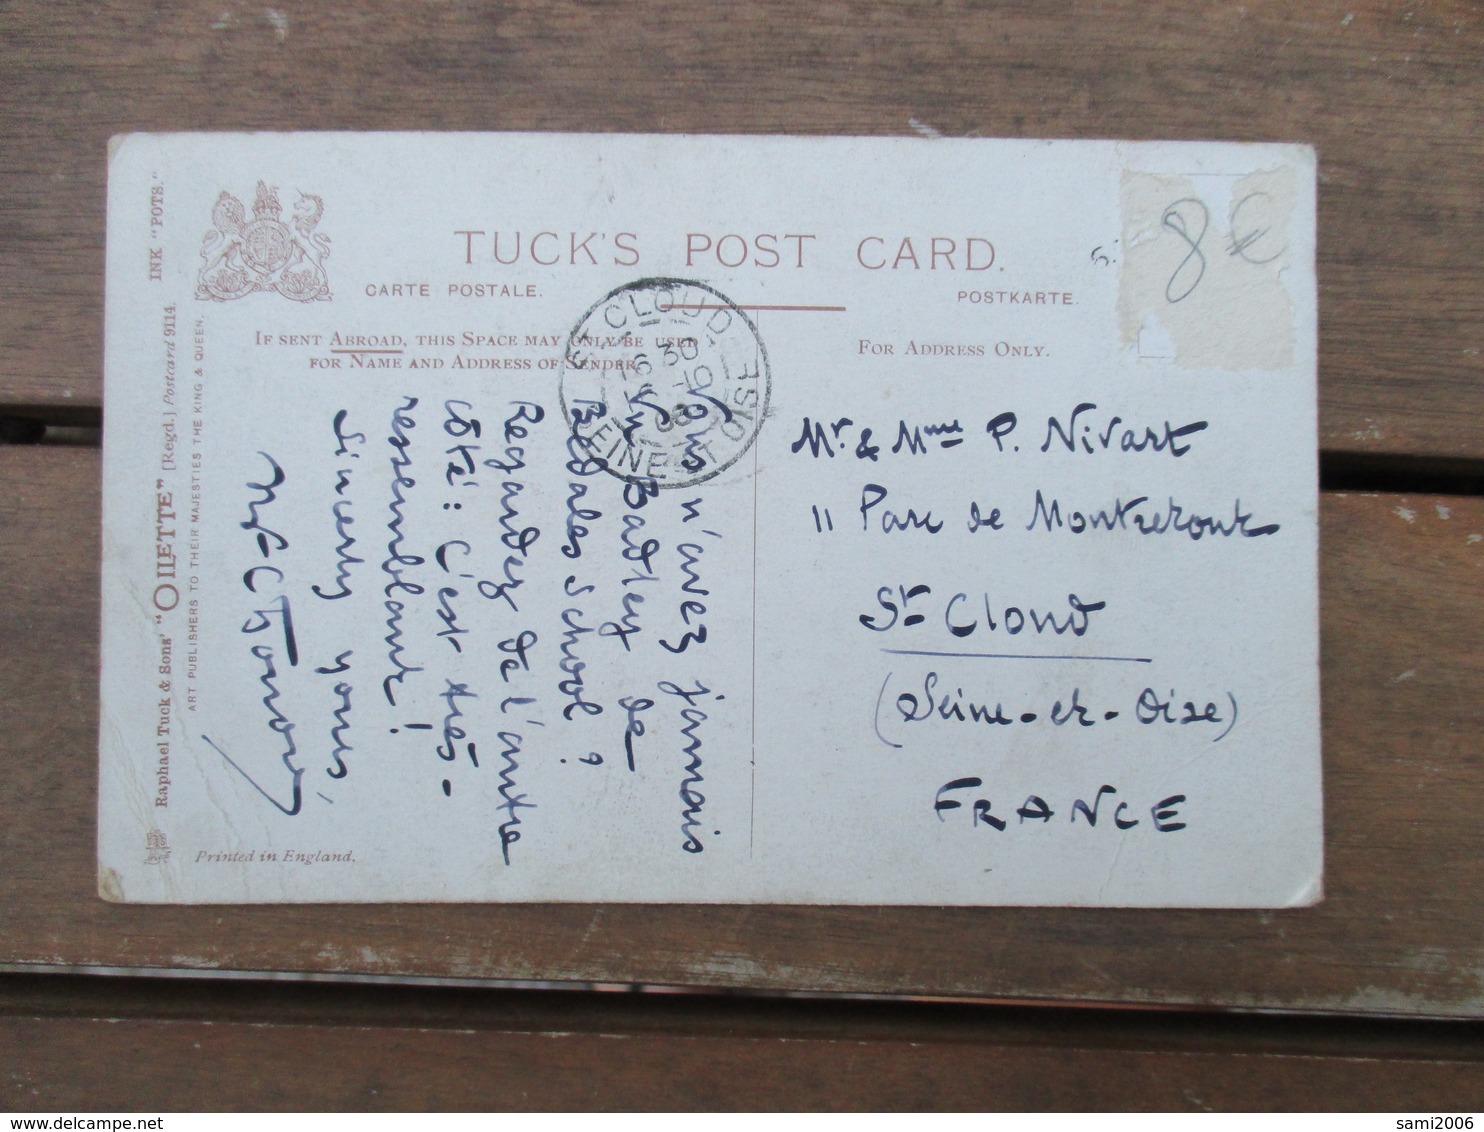 TUCK'S POST CARD.
CARTE POSTALE.
POSTKARTE.
IF SENT ABROAD, THIS SPACE MAY ONLY BE USED
FOR NAME AND ADDRESS OF SENDER.
FOR ADDRESS ONLY.
8€
ST CLOUD
16 30
10
08
SEINE ET OISE
Vous n'avez jamais
vu Badley de
Bedales School?
Regardez de l'autre
côté: C'est très-
ressemblant!
Sincerely yours,
Mr. & Mme P. Nivart
11 Parc de Montretout
St Cloud
(Seine-et-Oise)
FRANCE
INK "POTS."
Raphael Tuck & Sons' "OILETTE" [Regd.] Postcard 9114.
ART PUBLISHERS TO THEIR MAJESTIES THE KING & QUEEN.
Printed in England.
sami2006